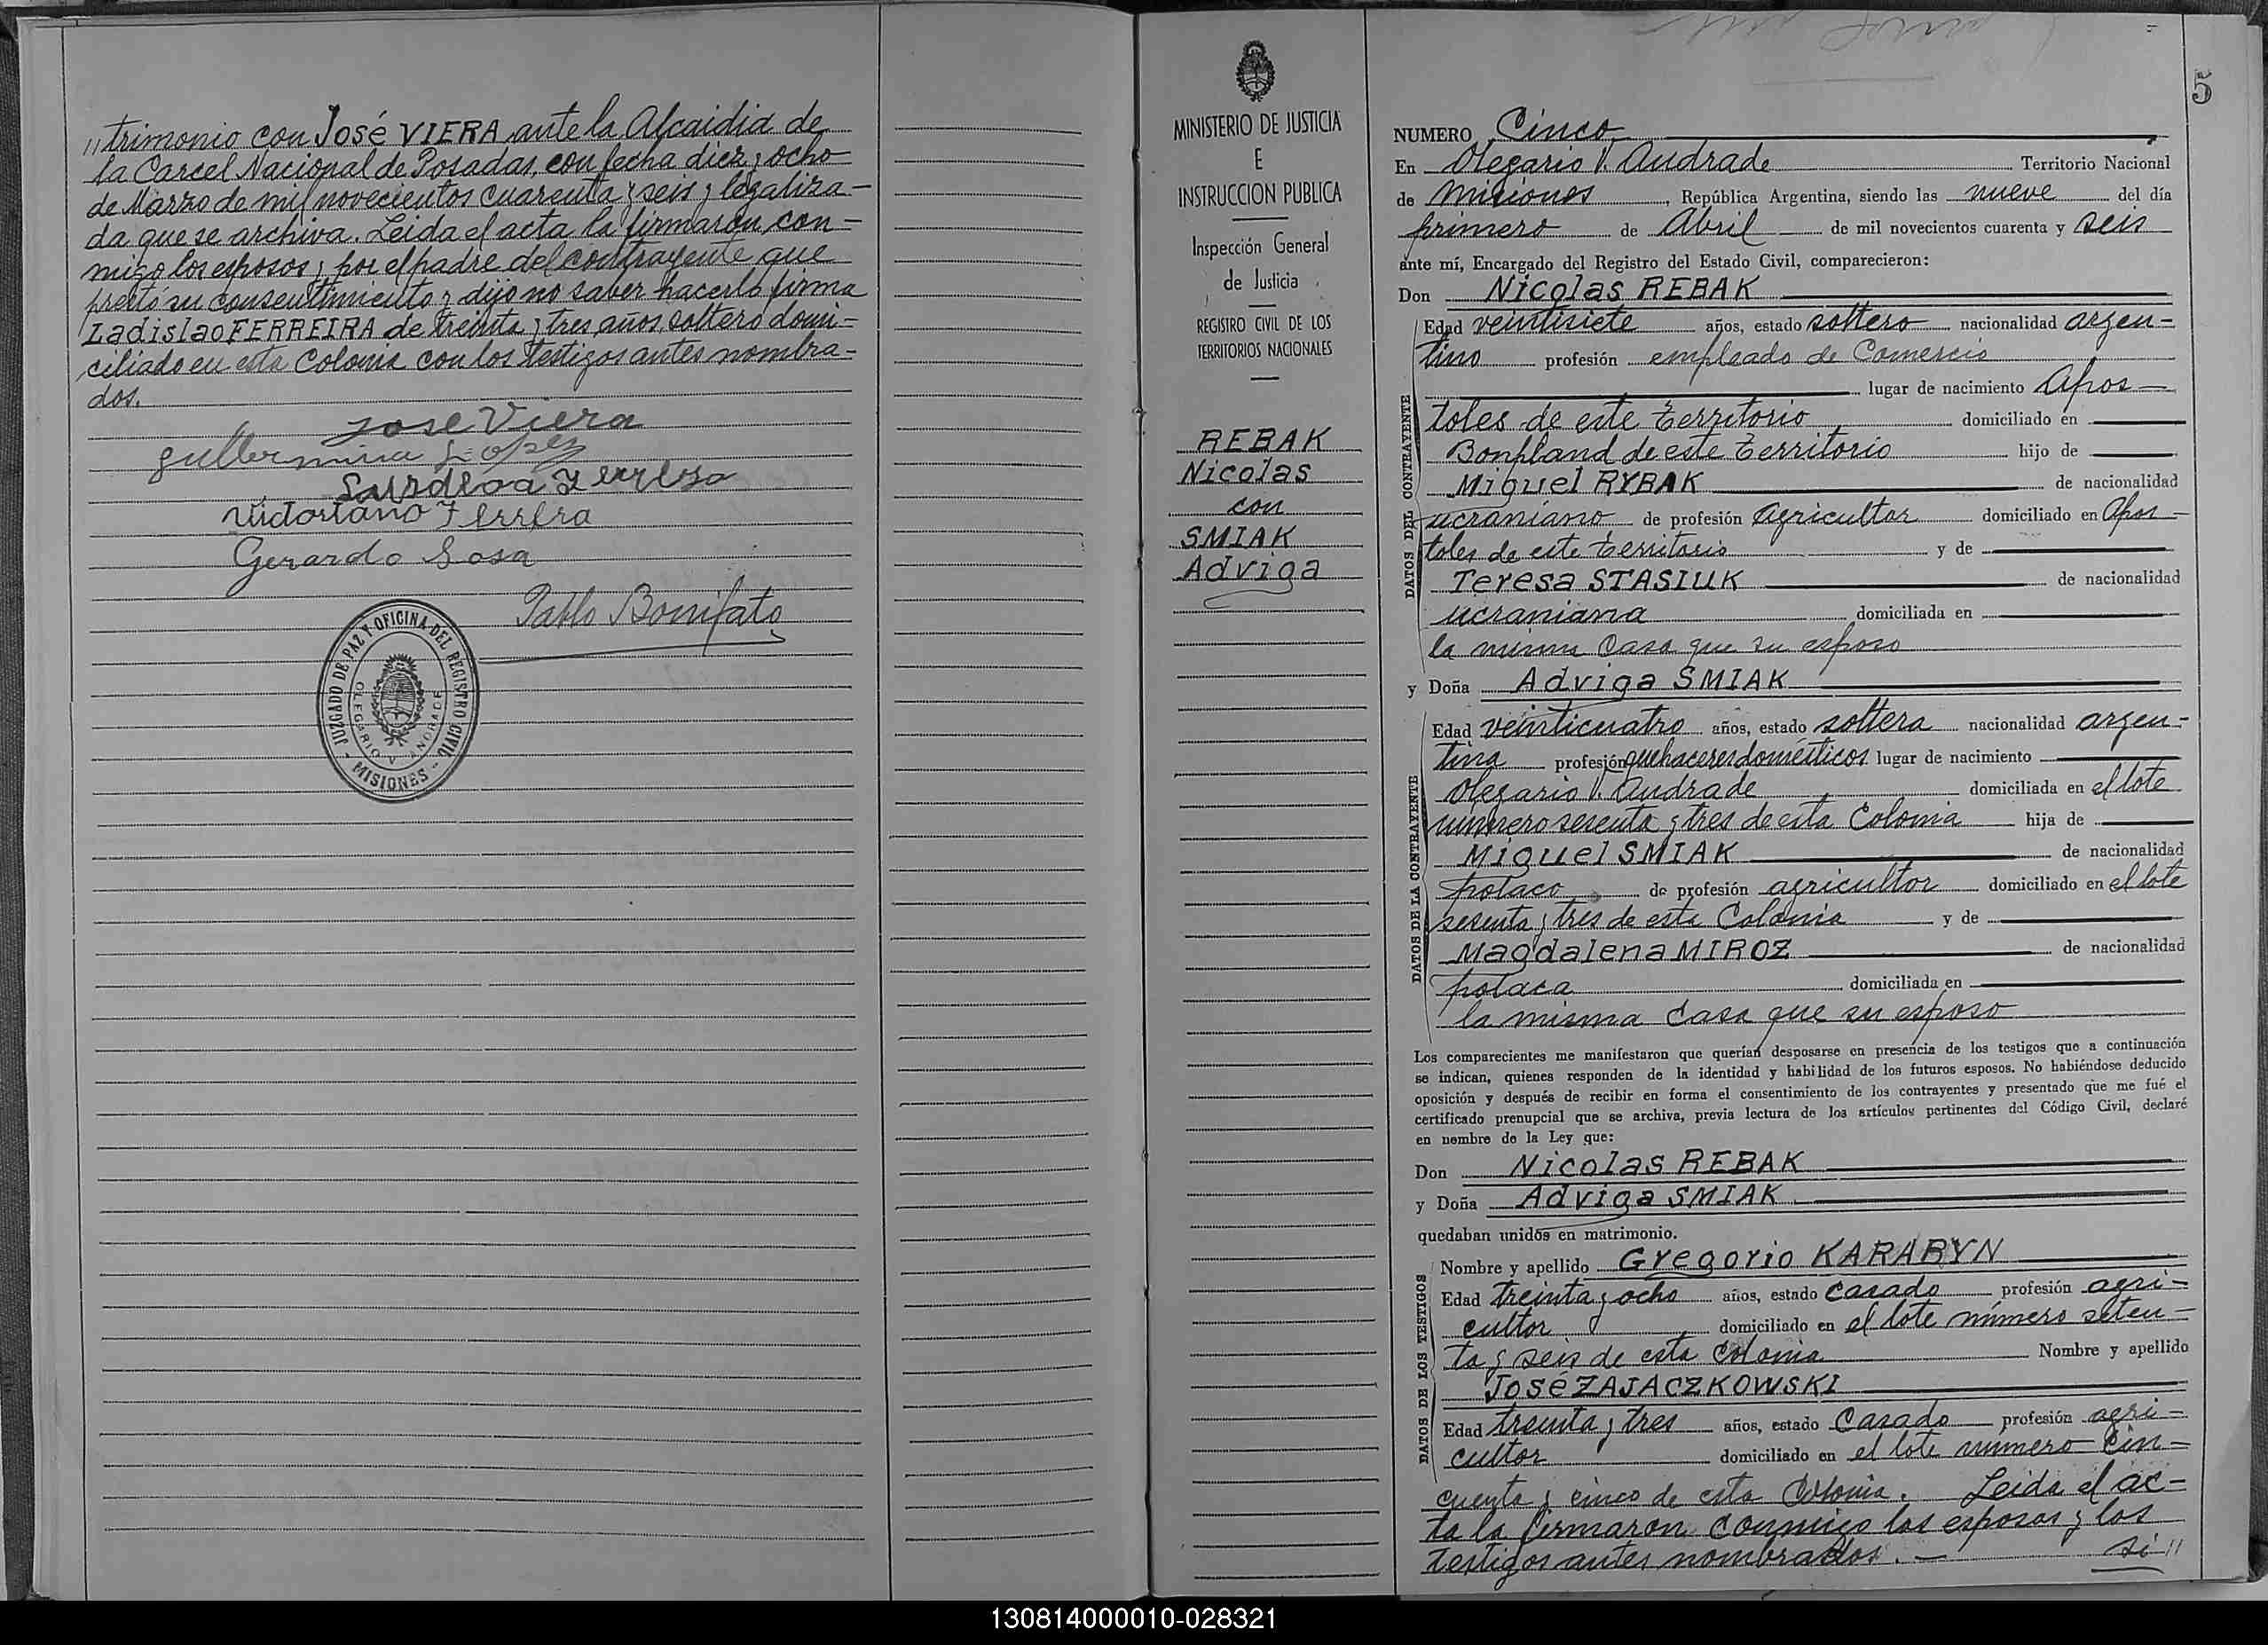 "trimonio con José VIERA ante la Alcaidia de
la Carcel Nacional de Posadas, con fecha diez y ocho
de Marzo de mil novecientos cuarenta y seis y legaliza-
da que se archiva. Leida el acta la firmaron con-
migo los esposos y por el padre del contrayente que
prestó su consentimiento y dijo no saber hacerlo firma
Ladislao FERREIRA de treinta y tres años, soltero domi-
ciliado en esta Colonia con los testigos antes nombra-
dos.
Jose Viera
Guillermina Lopez
Victoriano Ferrera
Gerardo Sosa
Pablo Bonifato
JUZGADO DE PAZ Y OFICINA DEL REGISTRO CIVIL
OLEGARIO V ANDRADE
- MISIONES -
MINISTERIO DE JUSTICIA
E
INSTRUCCION PUBLICA
Inspección General
de Justicia
REGISTRO CIVIL DE LOS
TERRITORIOS NACIONALES
REBAK
Nicolas
con
SMIAK
Adviga
5
NUMERO Cinco
En Olegario V. Andrade Territorio Nacional
de Misiones, República Argentina, siendo las nueve del día
primero de Abril de mil novecientos cuarenta y seis
ante mí, Encargado del Registro del Estado Civil, comparecieron:
Don Nicolas REBAK
DATOS DEL CONTRAYENTE
Edad veintisiete años, estado soltero nacionalidad argen-
tino profesión empleado de Comercio
lugar de nacimiento Apos-
toles de este territorio domiciliado en
Bonpland de este territorio hijo de
Miguel RYBAK de nacionalidad
ucraniano de profesión Agricultor domiciliado en Apos-
toles de este territorio y de
Teresa STASIUK de nacionalidad
ucraniana domiciliada en
la misma Casa que su esposo
y Doña Adviga SMIAK
DATOS DE LA CONTRAYENTE
Edad veinticuatro años, estado soltera nacionalidad argen-
tina profesión quehaceres domésticos lugar de nacimiento
Olegario V. Andrade domiciliada en el lote
número sesenta y tres de esta Colonia hija de
Miguel SMIAK de nacionalidad
polaco de profesión agricultor domiciliado en el lote
sesenta y tres de esta Colonia y de
Magdalena MIROZ de nacionalidad
polaca domiciliada en
la misma Casa que su esposo
Los comparecientes me manifestaron que querían desposarse en presencia de los testigos que a continuación
se indican, quienes responden de la identidad y habilidad de los futuros esposos. No habiéndose deducido
oposición y después de recibir en forma el consentimiento de los contrayentes y presentado que me fué el
certificado prenupcial que se archiva, previa lectura de los artículos pertinentes del Código Civil, declaré
en nombre de la Ley que:
Don Nicolas REBAK
y Doña Adviga SMIAK
quedaban unidos en matrimonio.
DATOS DE LOS TESTIGOS
Nombre y apellido Gregorio KARABYN
Edad treinta y ocho años, estado Casado profesión agri-
cultor domiciliado en el lote número seten-
ta y seis de esta Colonia Nombre y apellido
José ZAJACZKOWSKI
Edad treinta y tres años, estado Casado profesión agri-
cultor domiciliado en el lote número cin-
cuenta y cinco de esta Colonia. Leida el ac-
ta la firmaron conmigo los esposos y los
testigos antes nombrados.- si "
130814000010-028321